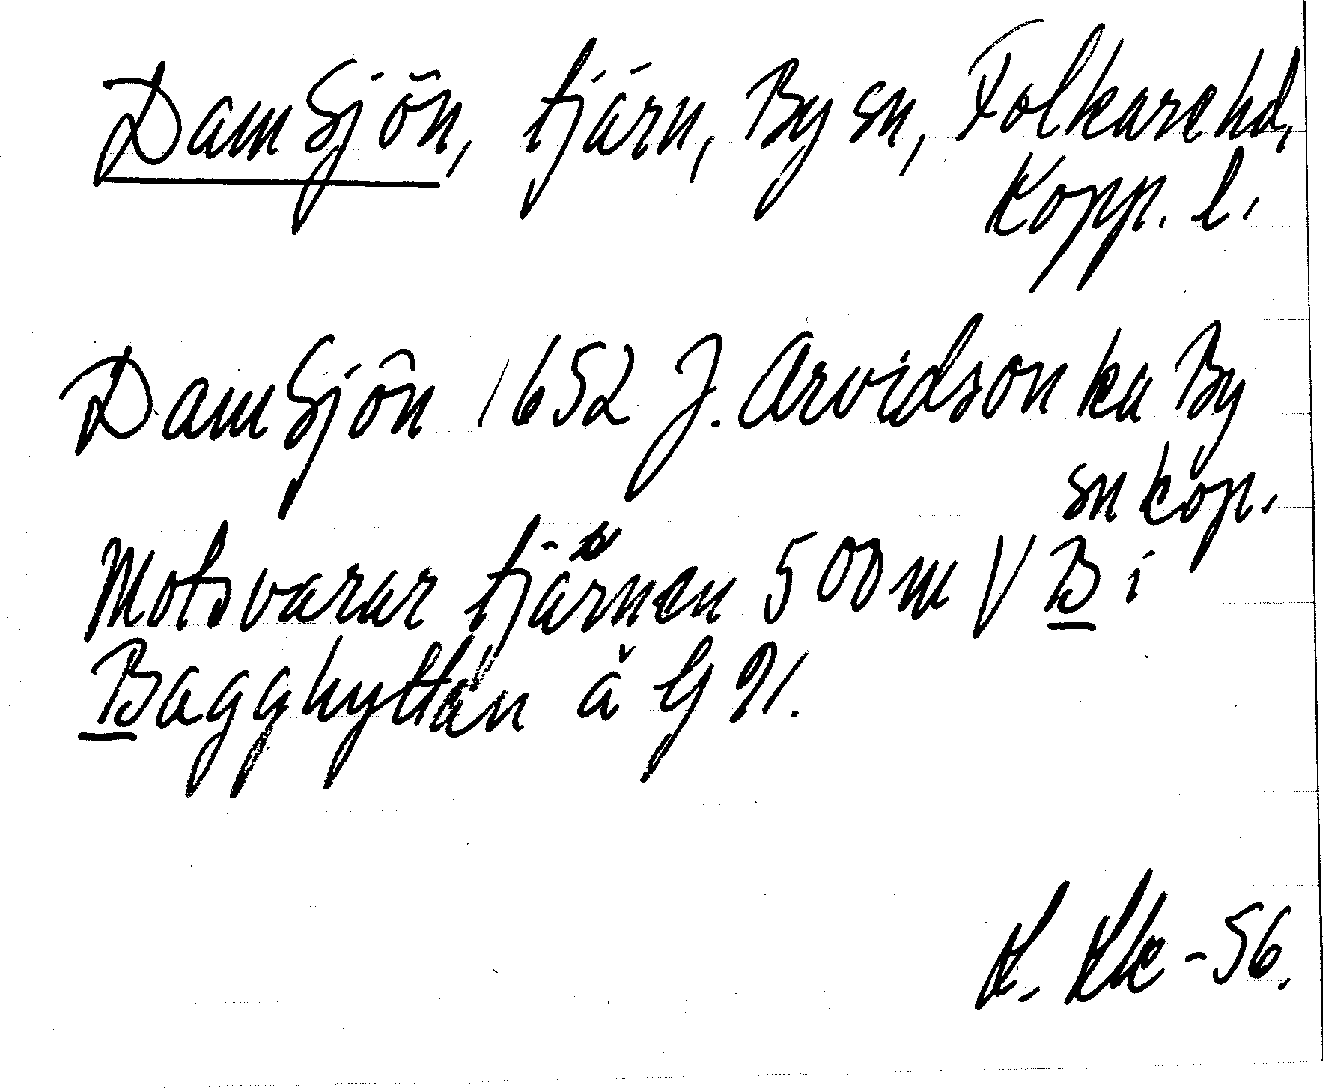 Dam Sjön, tjärn, By sn, Folkare hd,
Kopp. l.
Dam Sjön 1652 J. Arvidson ka By
sn kop.
Motsvarar tjärnen 500 m V B i
Bagghyttan å G 91.
K. Kk -56.